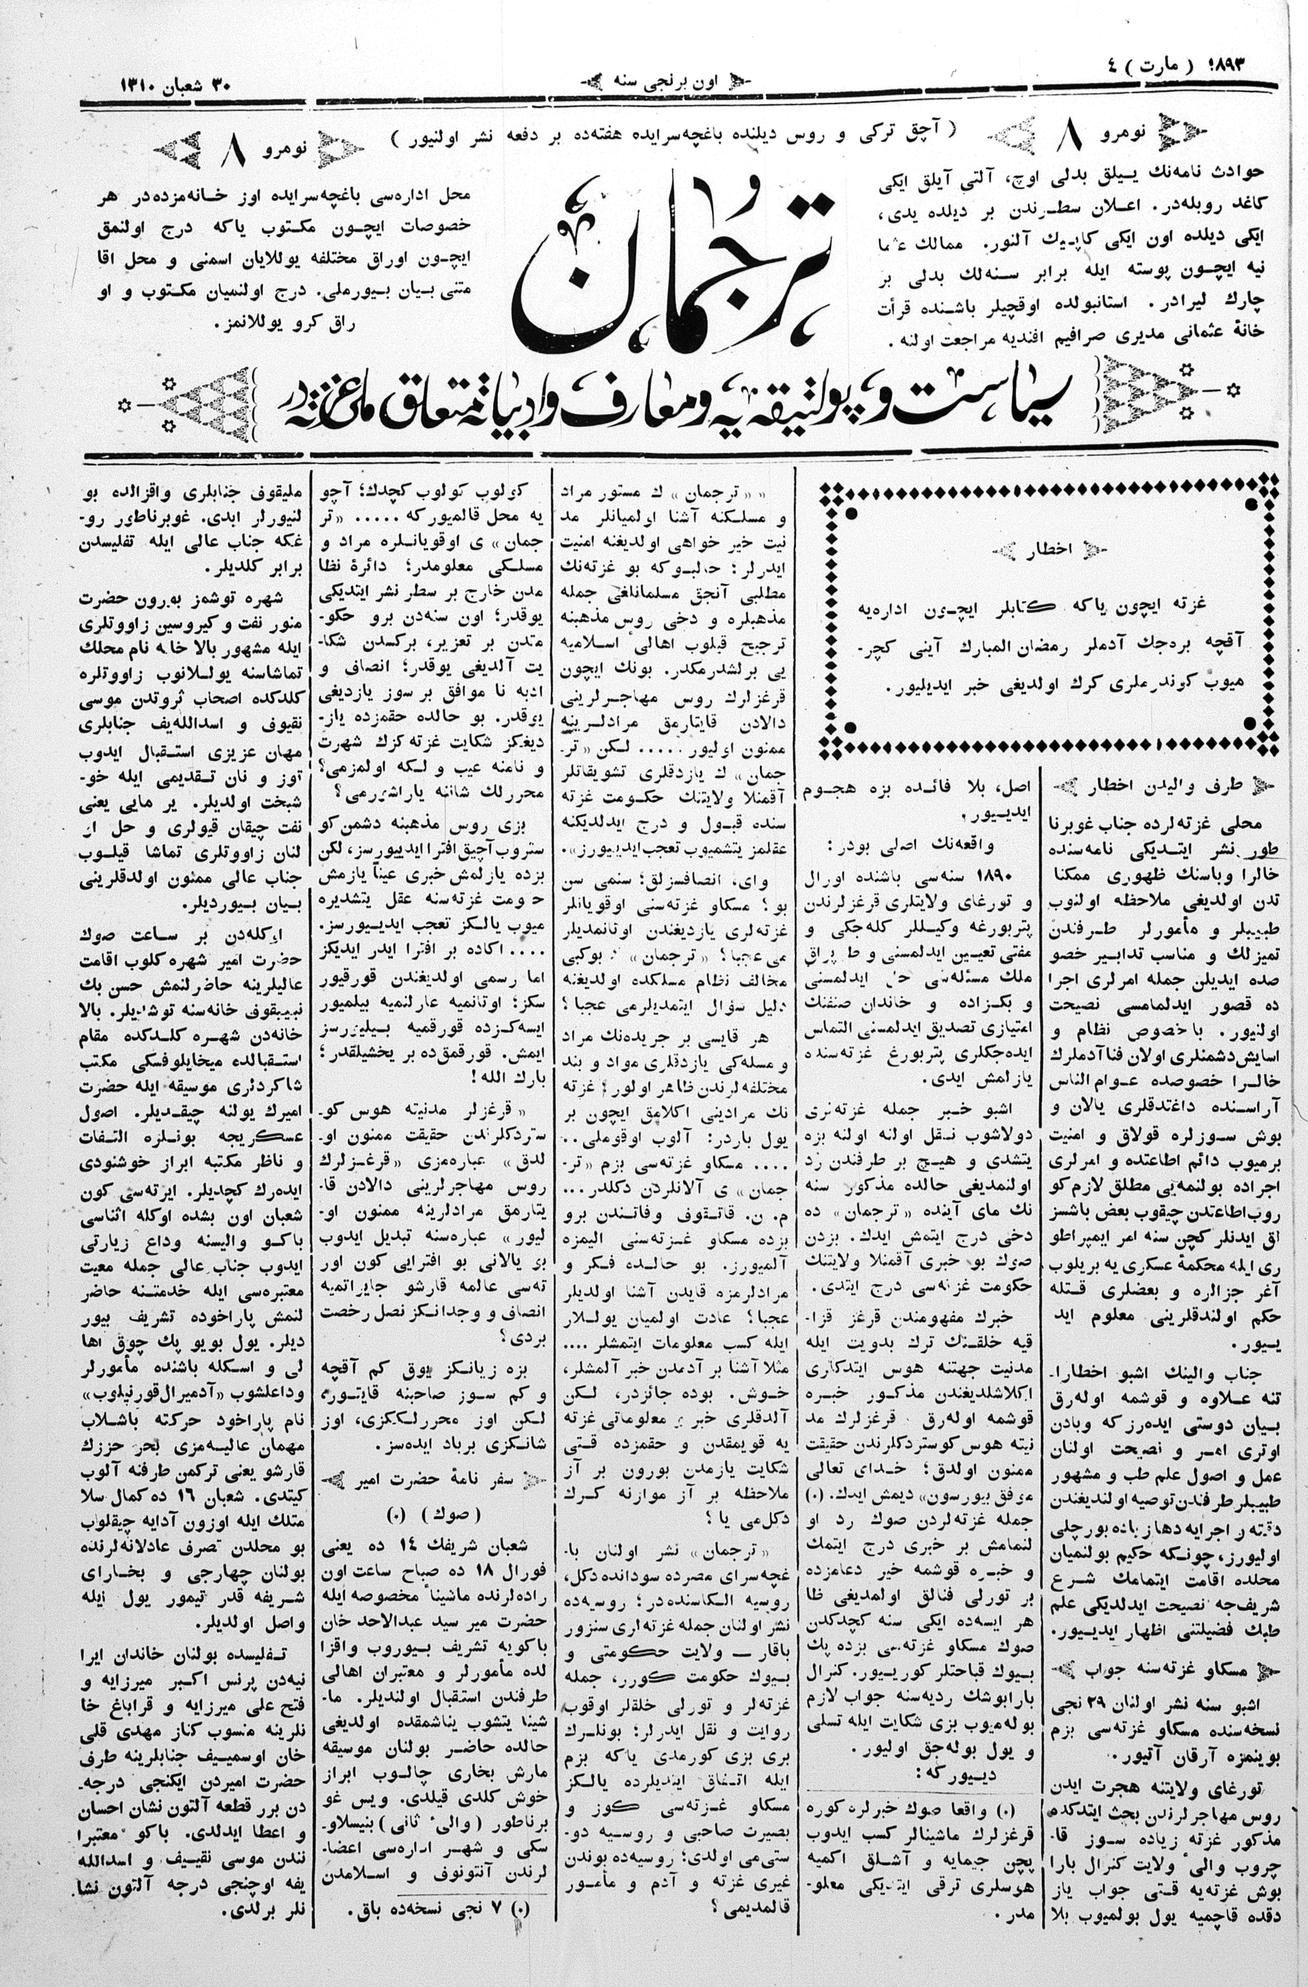 ١٨٩٣ ( مارت ) ٤
اون برنجی سنه
٣٠ شعبان ١٣١٠
نومرو ٨
( آچق ترکی و روس دیلنده باغچه سرایده هفته‌ده بر دفعه نشر اولنیور )
نومرو ٨
حوادث نامه‌نك ییلق بدلی اوچ، آلتی آیلق ایکی
کاغد روبله‌در. اعلان سطرندن بر دیلده یدی،
ایکی دیلده اون ایکی کاپیك آلنور. ممالك عثما
نیه ایچون پوسته ایله برابر سنه‌لك بدلی بر
چارك لیرادر. استانبولده اوقچیلر باشنده قرأت
خانهٔ عثمانی مدیری صرافیم افندیه مراجعت اولنه.
ترجمان
محل اداره‌سی باغچه سرایده اوز خانه‌مزده‌در هر
خصوصات ایچون مکتوب یاکه درج اولنمق
ایچون اوراق مختلفه یوللایان اسمنی و محل اقا
متنی بیان بیورملی. درج اولنمیان مکتوب و او
راق کرو یوللانمز.
سیاست و پولتیقه‌یه و معارف و ادبیاته متعلق ملی غزته‌در
اخطار
غزته ایچون یاکه کتابلر ایچون اداره‌یه
آقچه بره‌جك آدملر رمضان المبارك آینی کچر-
میوب کوندرملری کرك اولدیغی خبر ایدیلیور.
طرف والیدن اخطار
محلی غزته‌لرده جناب غوبرنا
طور نشر ایتدیکی نامه‌سنده
خالرا وباسنك ظهوری ممکنا
تدن اولدیغی ملاحظه اولنوب
طبیبلر و مأمورلر طرفندن
تمیزلك و مناسب تدابیر خصو
صده ایدیلن جمله امرلری اجرا
ده قصور ایدلمامسی نصیحت
اولنیور. باخصوص نظام و
اسایش دشمنلری اولان فنا آدملرك
خالرا خصوصده عوام الناس
آراسنده داغتدقلری یالان و
بوش سوزلره قولاق و امنیت
برمیوب دائم اطاعتده و امرلری
اجراده بولنمه‌یی مطلق لازم کو
روب اطاعتدن چیقوب بعض باشسز
اق ایدنلر کچن سنه امر ایمپراطو
ری ایله محکمهٔ عسکری یه بریلوب
آغر جزالره و بعضلری قتله
حکم اولندقلرینی معلوم اید
ییور.
جناب والینك اشبو اخطارا-
تنه علاوه و قوشمه اوله‌رق
بیان دوستی ایده‌رز که وبادن
اوتری امر و نصیحت اولنان
عمل و اصول علم طب و مشهور
طبیبلر طرفندن توصیه اولندیغندن
دقتله و اجرایه دها زیاده بورچلی
اولیورز، چونکه حکیم بولنمیان
محلده اقامت ایتمامك شرع
شریفجه نصیحت ایدلدیکی علم
طبك فضیلتنی اظهار ایدییور.
مسکاو غزته‌سنه جواب
اشبو سنه نشر اولنان ٢٩ نجی
نسخه‌سنده مسکاو غزته‌سی بزم
بوینمزه آرقان آتیور.
تورغای ولایتنه هجرت ایدن
روس مهاجرلرندن بحث ایتدکده
مذکور غزته زیاده سوز قا-
چروب والیٔ ولایت کنرال بارا
بوش غزته‌یه قتی جواب یاز
دقده قاچمیه یول بولمیوب بلا
اصل، بلا فائده بزه هجوم
ایدییور.
واقعه‌نك اصلی بودر:
١٨٩٠ سنه‌سی باشنده اورال
و تورغای ولایتلری قرغزلرندن
پتربورغه وکیللر کله‌جکی و
مفتی تعیین ایدلمسنی و طوپراق
ملك مسئله‌سی حل ایدلمسنی
و بکزاده و خاندان صنفنك
امتیازی تصدیق ایدلمسنی التماس
ایده‌جکلری پتربورغ غزته‌سنده
یازلمش ایدی.
اشبو خبر جمله غزته‌لری
دولاشوب نقل اولنه اولنه بزه
یتشدی و هیچ بر طرفندن رد
اولنمدیغی حالده مذکور سنه
نك مای آینده «ترجمان» ده
دخی درج ایتمش ایدك. بزدن
صوك بو خبری آقمنلا ولایتنك
حکومت غزته‌سی درج ایتدی.
خبرك مفهومندن قرغز قزا-
قیه خلقنك ترك بدویت ایله
مدنیت جهتنه هوس ایتدکلری
اکلاشلدیغندن مذکور خبره
قوشمه اوله‌رق «قرغزلرك مد
نیته هوس کوستردکلرندن حقیقت
ممنون اولدق؛ خدای تعالی
موفق بیورسون» دیمش ایدك. (٠)
جمله غزته‌لردن صوك رد او
لنمامش بر خبری درج ایتمك
و خبره قوشمه خیر دعامزده
بر تورلی فنالق اولمدیغی ظا
هر ایسه‌ده ایکی سنه کچدکدن
صوك مسکاو غزته‌سی بزده پك
بیوك قباحتلر کوریبور. کنرال
بارابوشك ردیه‌سنه جواب لازم
بوله‌میوب بزی شکایت ایله تسلی
و یول بوله‌جق اولیور.
دییور که:
(٠) واقعا صوك خبرلره کوره
قرغزلرك ماشینالر کسب ایدوب
پچن جیمایه و آشلق اکمیه
هوسلری ترقی ایتدیکی معلو-
مدر.
« «ترجمان» ك مستور مراد
و مسلکنه آشنا اولمیانلر مد
نیت خیر خواهی اولدیغنه امنیت
ایدرلر؛ حالبوکه بو غزته‌نك
مطلبی آنجق مسلمانلغی جمله
مذهبلره و دخی روس مذهبنه
ترجیح قیلوب اهالیٔ اسلامیه
یی برلشدرمکدر. بونك ایچون
قرغزلرك روس مهاجرلرینی
دالادن قایتارمق مرادلرینه
ممنون اولیور..... لکن «تر-
جمان» ك یازدقلری تشویقاتلر
آقمنلا ولایتنك حکومت غزته
سنده قبول و درج ایدلدیکنه
عقلمز یتشمیوب تعجب ایدییورز».
وای، انصافسزلق؛ سنمی سن
بو؟ مسکاو غزته‌سنی اوقویانلر
غزته‌لری یازدیغندن اوتانمدیلر
می عجبا؟ «ترجمان» ك بوکبی
مخالف نظام مسلکده اولدیغنه
دلیل سؤال ایتمدیلرمی عجبا؟
هر قایسی بر جریده‌نك مراد
و مسله‌کی یازدقلری مواد و بند
مختلفه‌لرندن ظاهر اولور؛ غزته
نك مرادینی اکلامق ایچون بر
یول باردر: آلوب اوقوملی..
.... مسکاو غزته‌سی بزم «تر-
جمان» ی آلانلردن دکلدر...
م. ن. قاتقوف وفاتندن برو
بزده مسکاو غزته‌سنی الیمزه
آلمیورز. بو حالده فکر و
مرادلرمزه قایدن آشنا اولدیلر
عجبا؟ عادت اولمیان یوللار
ایله کسب معلومات ایتمشلر....
مثلا آشنا بر آدمدن خبر آلمشلر،
خوش. بوده جائزدر، لکن
آلدقلری خبر و معلوماتی غزته
یه قویمقدن و حقمزده قتی
شکایت یازمدن بورون بر آز
ملاحظه بر آز موازنه کرك
دکل‌می یا؟
«ترجمان» نشر اولنان با-
غچه‌سرای مصرده سودانده دکل،
روسیه الکاسنده‌در؛ روسیه‌ده
نشر اولنان جمله غزته‌لری سنزور
باقار — ولایت حکومتی و
بیوك حکومت کورر، جمله
غزته‌لر و تورلی خلقلر اوقوب
روایت و نقل ایدرلر؛ بونلرك
بری بزی کورمدی یاکه بزم
ایله اتفاق ایتدیلرده یالکز
مسکاو غزته‌سی کوز و
بصیرت صاحبی و روسیه دو-
ستی‌می اولدی؛ روسیه‌ده بوندن
غیری غزته و آدم و مأمور
قالمدیمی؟
کولوب کولوب کچدك؛ آچو
یه محل قالمیور که ..... «تر
جمان» ی اوقویانلره مراد و
مسلکی معلومدر؛ دائرهٔ نظا
مدن خارج بر سطر نشر ایتدیکی
یوقدر؛ اون سنه‌دن برو حکو-
متدن بر تعزیر، برکسدن شکا-
یت آلدیغی یوقدر؛ انصافی و
ادبه نا موافق بر سوز یازدیغی
یوقدر. بو حالده حقمزده یاز-
دیغکز شکایت غزته‌کزك شهرت
و نامنه عیب و لکه اولمزمی؟
محررلك شاننه یاراشرمی؟
بزی روس مذهبنه دشمن کو
ستروب آچیق افترا ایدییورسز، لکن
بزده یازلمش خبری عیناً یازمش
حکومت غزته‌سنه عقل یتشدیره
میوب یالکز تعجب ایدییورسز.
.... اکاده بر افترا ایدر ایدیکز
اما رسمی اولدیغندن قورقیور
سکز؛ اوتانمیه عارلنمیه بیلمیور
ایسه‌کزده قورقمیه بیلیورسز
ایمش. قورقمق‌ده بر یخشیلقدر؛
بارك الله!
«قرغزلر مدنیته هوس کو-
ستردکلرندن حقیقت ممنون او-
لدق» عباره‌مزی «قرغزلرك
روس مهاجرلرینی دالادن قا-
یتارمق مرادلرینه ممنون او-
لیور» عباره‌سنه تبدیل ایدوب
بو یالانی بو افترایی کون اور
ته‌سی عالمه قارشو جایراتمیه
انصاف و وجدانکز نصل رخصت
بردی؟
بزه زیانکز یوق کم آقچه
و کم سوز صاحبنه قایتور؛
لکن اوز محررلککزی، اوز
شانکزی برباد ایده‌سز.
سفر نامهٔ حضرت امیر
(صوك) (٠)
شعبان شریفك ١٤ ده یعنی
فورال ١٨ ده صباح ساعت اون
راده‌لرنده ماشیناٴ مخصوصه ایله
حضرت میر سید عبدالاحد خان
باکویه تشریف بیوروب واقزا
لده مأمورلر و معتبران اهالی
طرفندن استقبال اولندیلر. ما-
شینا یتشوب یناشمقده اولدیغی
حالده حاضر بولنان موسیقه
مارش بخاری چالوب ابراز
خوش کلدی قیلدی. ویس غو
برناطور (والیٔ ثانی) بنیسلاو-
سکی و شهر اداره‌سی اعضا-
لرندن آنتونوف و اسلامدن
(٠) ٧ نجی نسخه‌ده باق.
ملیقوف جنابلری واقزالده بو
لنیورلر ایدی. غوبرناطور رو-
غکه جناب عالی ایله تفلیسدن
برابر کلدیلر.
شهره توشمز بورون حضرت
منور نفت و کیروسین زاووتلری
ایله مشهور بالا خانه نام محلك
تماشاسنه یوللانوب زاووتلره
کلدکده اصحاب ثروتدن موسی
نقیوفی و اسدالله‌یف جنابلری
مهمان عزیزی استقبال ایدوب
توز و نان تقدیمی ایله خو-
شبخت اولدیلر. یر مایی یعنی
نفت چیقان قیولری و حل ار
لنان زاووتلری تماشا قیلوب
جناب عالی ممنون اولدقلرینی
بیان بیوردیلر.
اوکله‌دن بر ساعت صوك
حضرت امیر شهره کلوب اقامت
عالیلرینه حاضرلنمش حسن بك
نبییقوف خانه‌سنه توشدیلر. بالا
خانه‌دن شهره کلدکده مقام
استقبالده میخایلوفسکی مکتب
شاکردلری موسیقه ایله حضرت
امیرك یولنه چیقدیلر. اصول
عسکریجه بونلره التفات
و ناظر مکتبه ابراز خوشنودی
ایده‌رك کچدیلر. ایرته‌سی کون
شعبان اون بشده اوکله اثناسی
باکو والیسنه وداع زیارتی
ایدوب جناب عالی جمله معیت
معتبره‌سی ایله خدمتنه حاضر
لنمش پاراخوده تشریف بیور
دیلر. یول بویو پك چوق اها
لی و اسکله باشنده مأمورلر
وداعلشوب «آدمیرال قورنیلوب»
نام پاراخود حرکته باشلاب
مهمان عالیه‌مزی بحر حزرك
قارشو یعنی ترکمن طرفنه آلوب
کیتدی. شعبان ١٦ ده کمال سلا
متلك ایله اوزون آدایه چیقلوب
بو محلدن تصرف عادلانه‌لرنده
بولنان چهارجی و بخارای
شریفه قدر تیمور یول ایله
واصل اولدیلر.
تفلیسده بولنان خاندان ایرا
نیه‌دن پرنس اکبر میرزایه و
فتح علی میرزایه و قراباغ خا
نلرینه منسوب کناز مهدی قلی
خان اوسمییف جنابلرینه طرف
حضرت امیردن ایکنجی درجه-
دن برر قطعه آلتون نشان احسان
و اعطا ایدلدی. باکو معتبرا
نندن موسی نقییف و اسدالله
یفه اوچنجی درجه آلتون نشا
نلر برلدی.